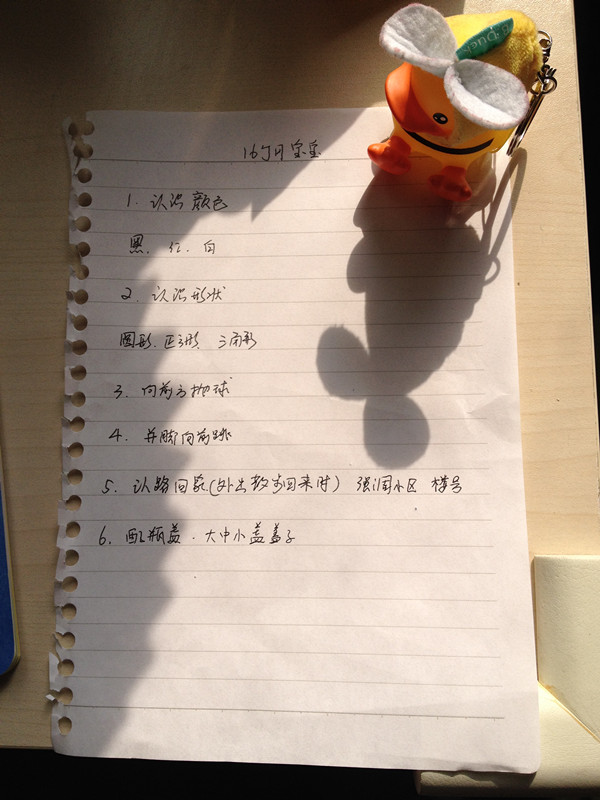 16个月宝宝
1. 认识颜色
黑、红、白
2. 认识形状
圆形、正方形、三角形
3. 向前方抛球
4. 并脚向前跳
5. 认路回家(外出散步回来时) 小区 楼号
6. 配瓶盖.大中小盖盖子